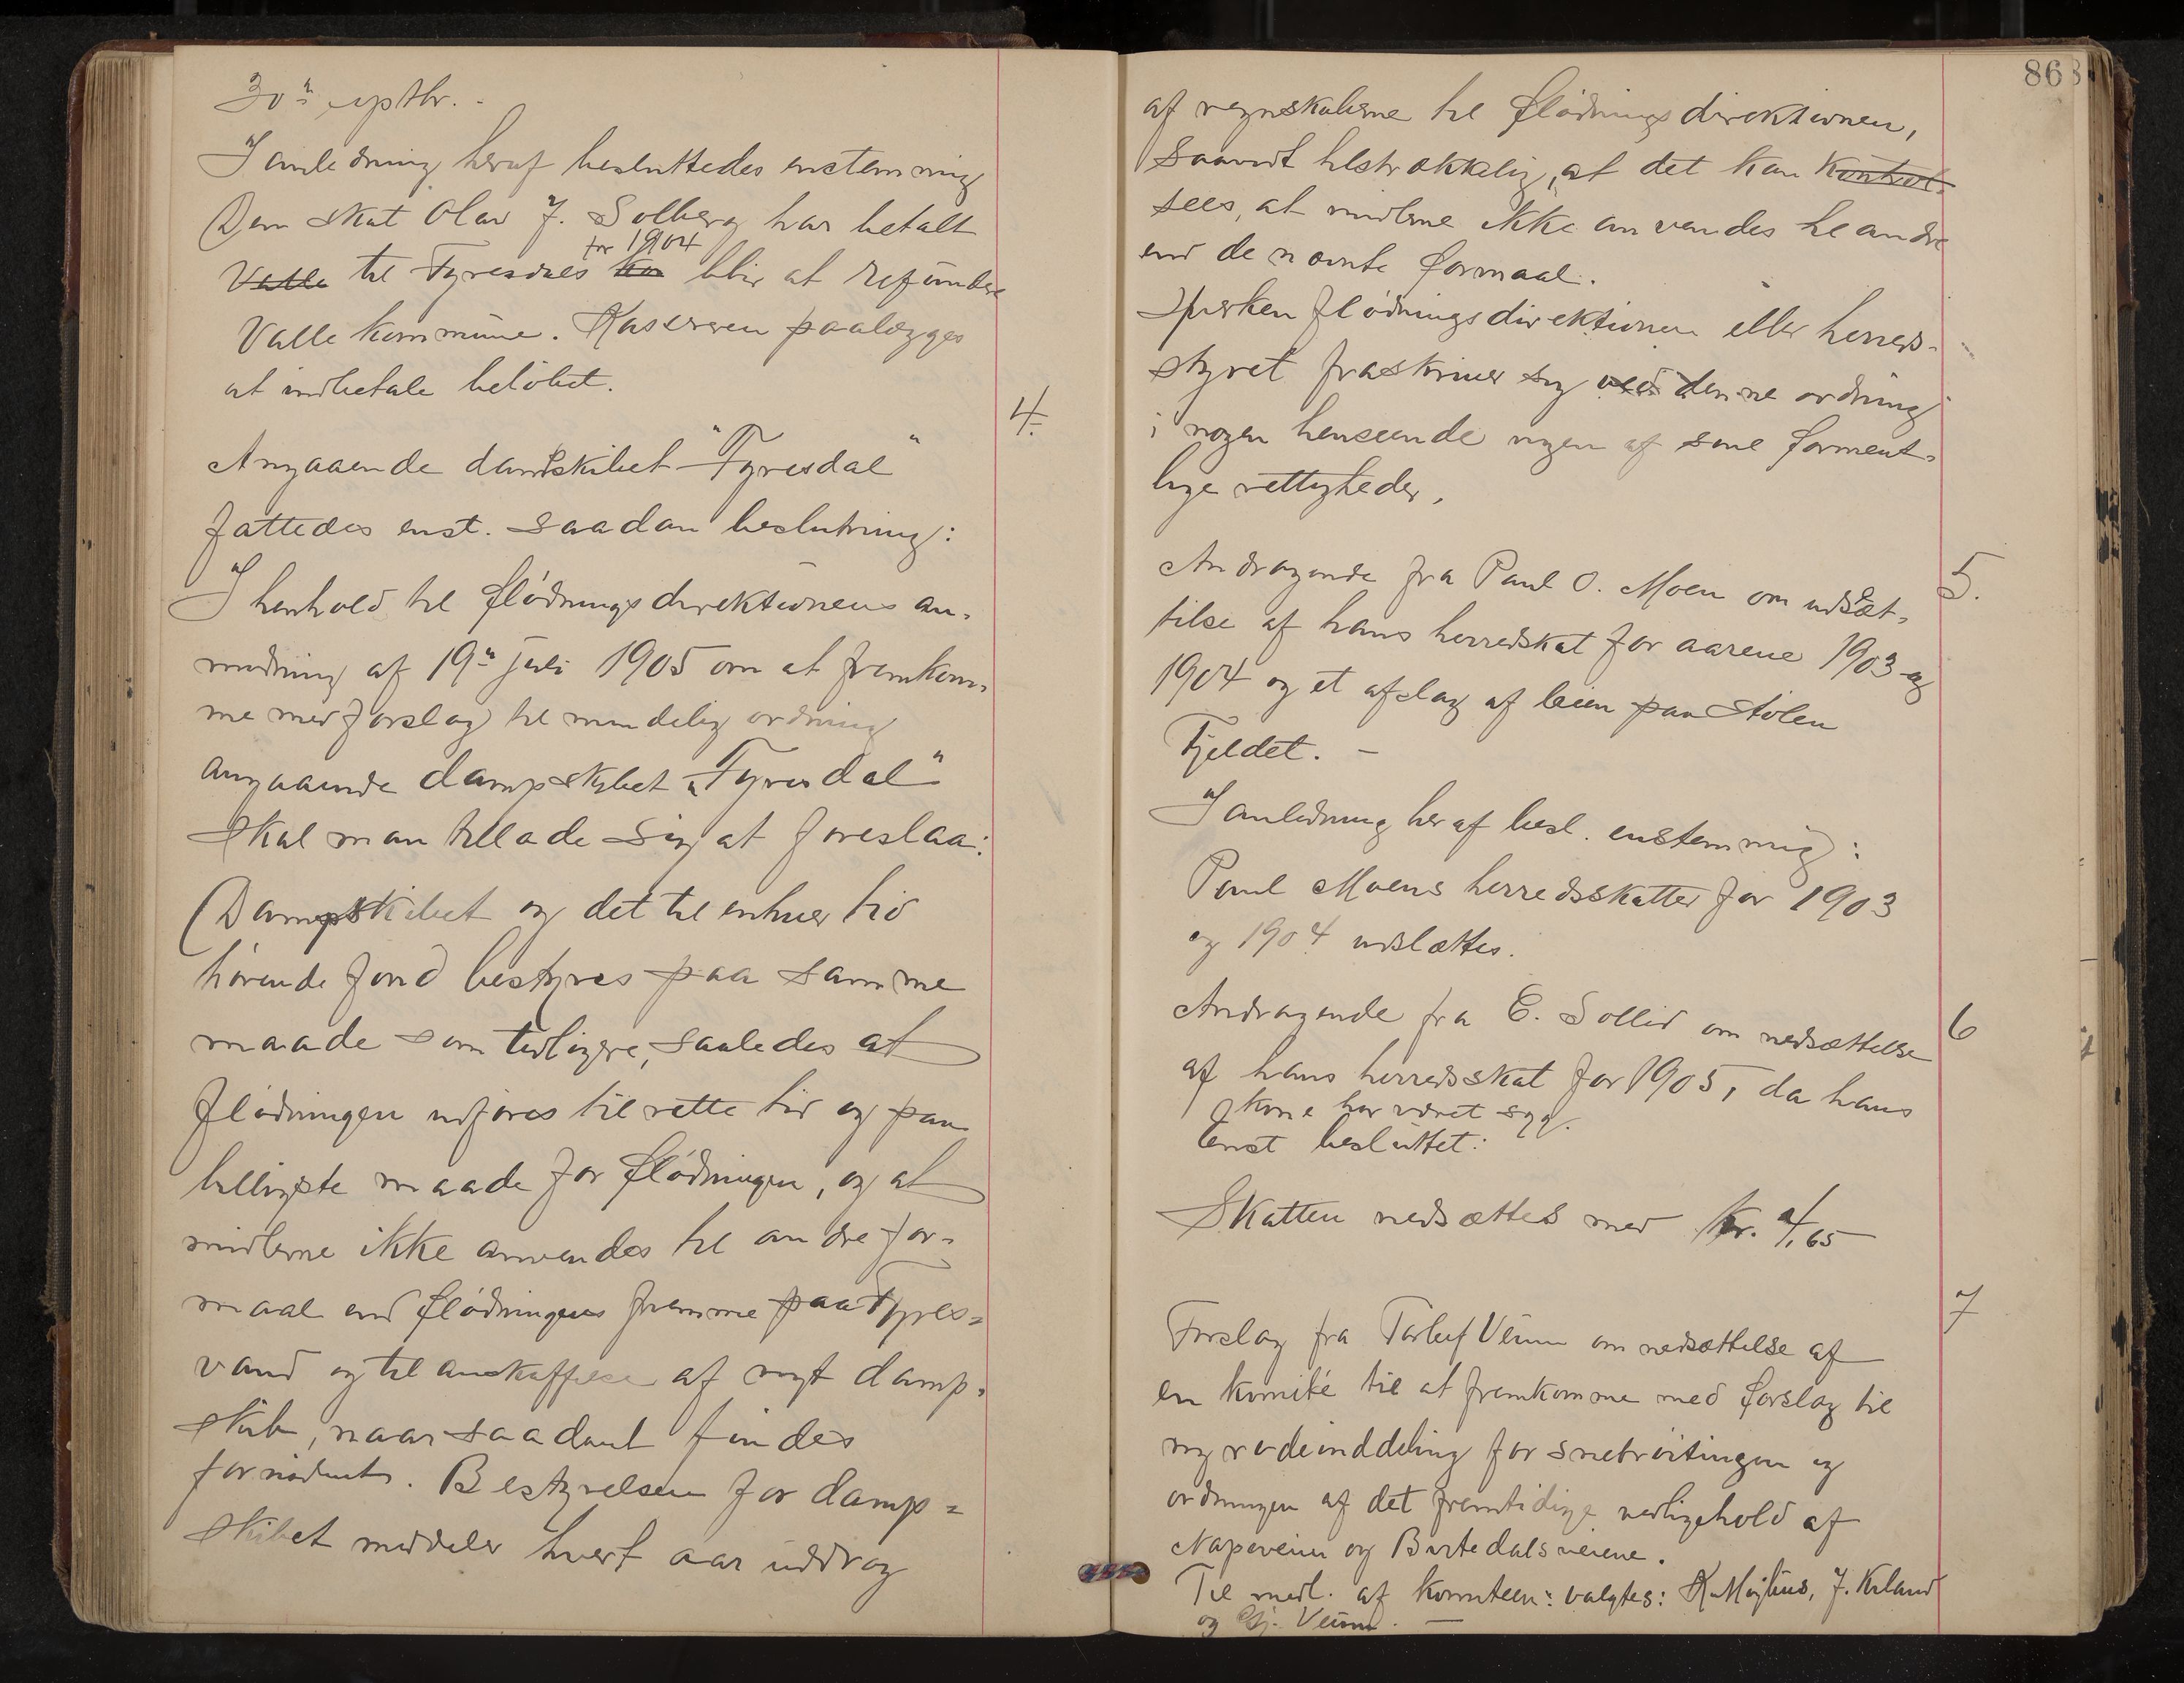 30te septbr. -
I anledning heraf besluttedes enstemmig
Den skat Olav J. Solberg har betalt
for 1904
Valle til Tyresdals har blir at refundere
Valle kommune. Kasseren paalægges
at indbetale beløbet.
4.
Angaaende dampskibet "Tyresdal"
fattedes enst. saadan beslutning:
I henhold til flødningsdirektionens an-
modning af 19de juli 1905 om at fremkom-
me med forslag til mindelig ordning
angaaende dampskibet "Tyresdal"
skal man tillade sig at foreslaa:
Dampskibet og det til enhver tid
hørende fond bestyres paa samme
maade som tidligere, saaledes at
flødningen udføres til rette tid og paa
billigste maade for flødningen, og at
midlerne ikke anvendes til andre for-
maal end flødningens fremme paa Tyres-
vand og til anskaffelse af nyt damp-
skib, naar saadant findes
fornødent. Bestyrelsen for damp-
skibet meddeler hvert aar uddrag
868
af regnskaberne til flødningsdirektionen,
saavidt tilstrækkelig, at det kan kontrol-
sees, at midlerne ikke anvendes til andre
end de nævnte formaal.
Hverken flødningsdirektionen eller herreds-
styret fraskriver sig ved denne ordning
i nogen henseende nogen af sine forment-
lige rettigheder.
5.
Andragende fra Paul O. Moen om udslet-
telse af hans herredskat for aarene 1903 og
1904 og et afslag af leien paa Stølen
Fjeldet. -
I anledning heraf besl. enstemmig:
Paul Moens herredsskatter for 1903
og 1904 udslættes.
6
Andragende fra E. Sollid om nedsættelse
af hans herredsskat for 1905, da hans
kone har været syg.
Enst besluttet:
Skatten nedsættes med kr. 4,65
7
Forslag fra Torleif Veum om nedsættelse af
en komité til at fremkomme med forslag til
ny rodeinddeling for snebrøitingen og
ordningen af det fremtidige vedligehold af
Napeveien og Birtedalsveiene.
Til medl. af komiteen: valgtes: K. Mojlius, J. Kiland
og Gj. Veum. -